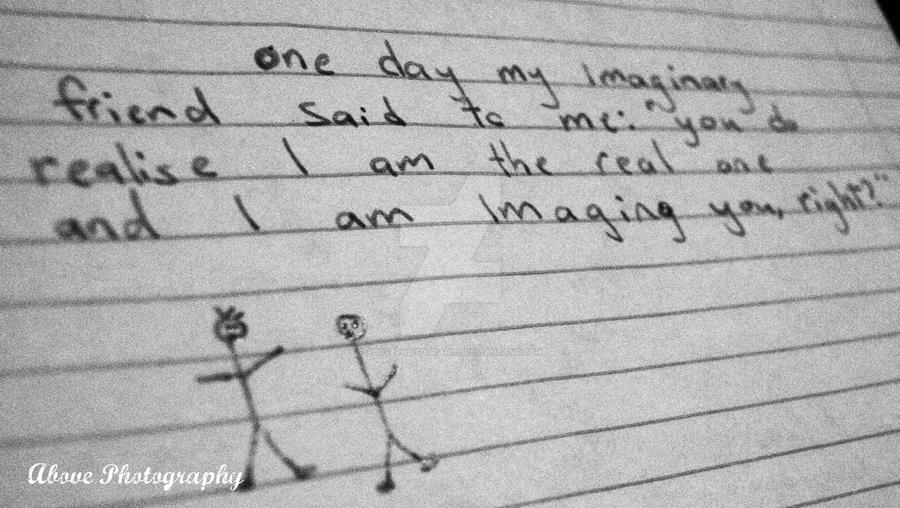 one day my Imaginary
friend said to me: "you do
realise I am the real one
and I am Imaging you, right?"
Above Photography